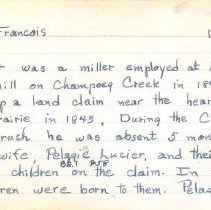 Francois 1
was a miller employed at
mill on Champoeg Creek in 184
p a land claim near the hear
rairie in 1845. During the C
rush he was absent 5 mon
wife, Pelagie Lucier, and thei
children on the claim. In
ren were born to them. Pelag